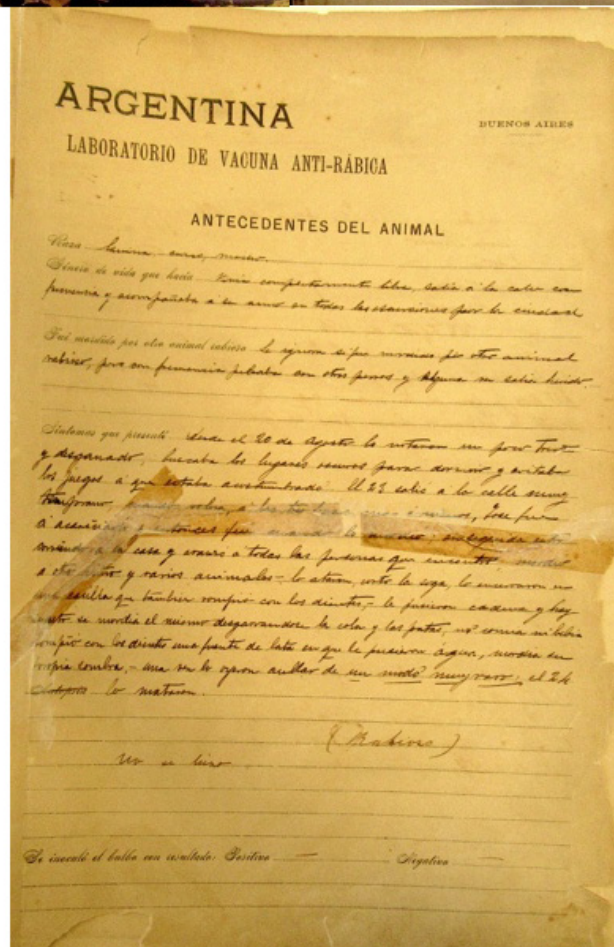 ARGENTINA
BUENOS AIRES
LABORATORIO DE VACUNA ANTI-RÁBICA
ANTECEDENTES DEL ANIMAL
Raza
Género de vida que hacía Vivía completamente libre, salía a la calle con
frecuencia y acompañaba a su amo en todas las excursiones por la ciudad
Fué mordido por otro animal rabioso Se ignora si fue mordido por otro animal
rabioso, pero con frecuencia peleaba con otros perros y alguna vez salía herido.
Síntomas que presentó desde el 20 de Agosto lo notaron un poco triste
y desganado, buscaba los lugares oscuros para dormir y evitaba
los juegos a que estaba acostumbrado. El 23 salió a la calle muy
temprano, cuando volvía, a las tres horas más ó menos, José fue
á acariciarlo y entonces fué cuando lo mordió; enseguida
la casa y a todas las personas que encontró, mordió
a otro y varios animales - lo ataron, cortó la soga, lo encerraron en
una que también rompió con los dientes, - le pusieron cadena y
se mordía el mismo desgarrandose la cola y las patas, no comía ni bebía
rompió con los dientes una fuente de lata en que le pusieron agua, mordía su
propia sombra, - una vez lo oyeron aullar de un modo muy raro; el 24
lo mataron.
(Rabioso)
No se hizo
Se inoculó el bulbo con resultado: Positivo — Negativo —